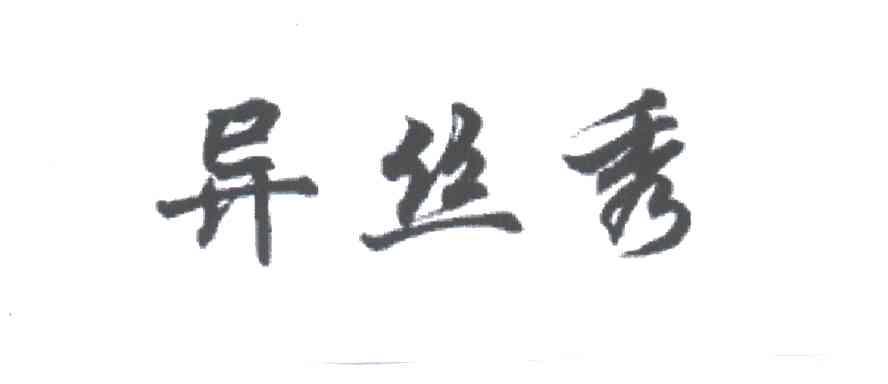 异丝秀